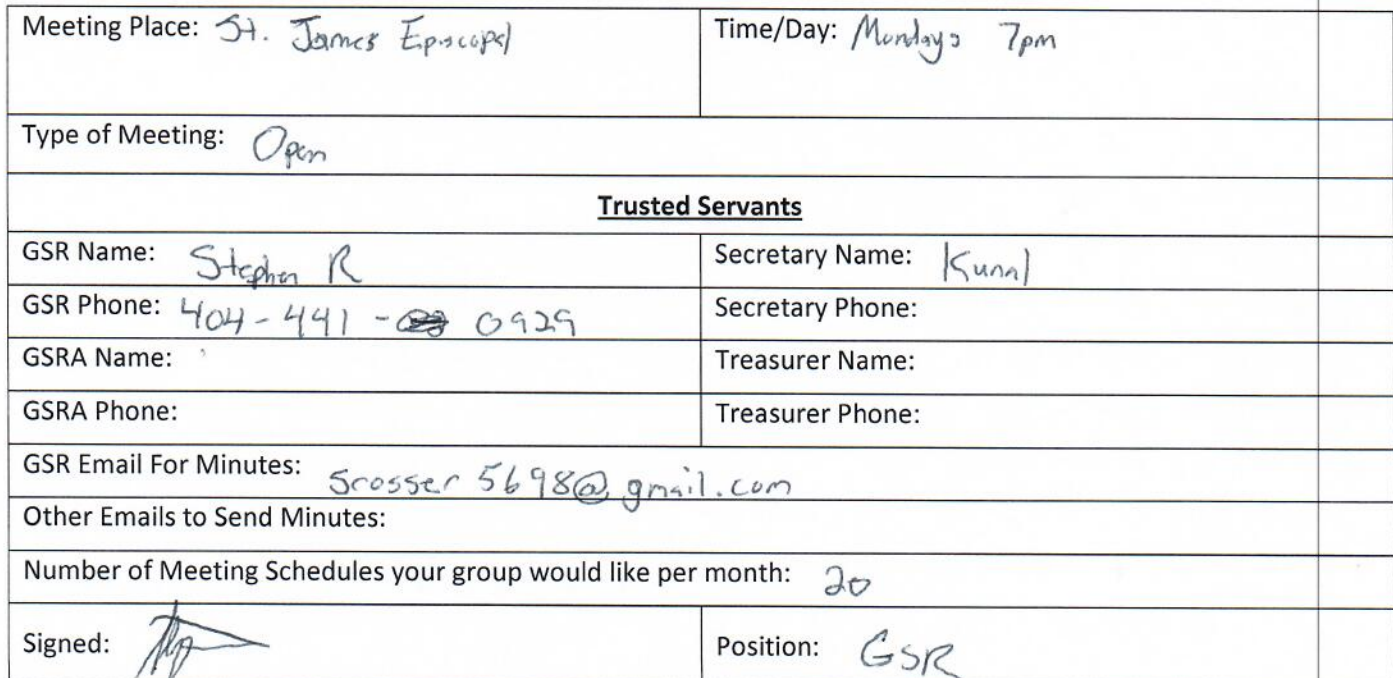 Meeting Place: St. James Episcopal Time/Day: Mondays 7pm
Type of Meeting: Open
Trusted Servants
GSR Name: Stephen R Secretary Name: Kunal
GSR Phone: 404-441-0929 Secretary Phone:
GSRA Name: Treasurer Name:
GSRA Phone: Treasurer Phone:
GSR Email For Minutes: srosser5698@gmail.com
Other Emails to Send Minutes:
Number of Meeting Schedules your group would like per month: 20
Signed: Position: GSR